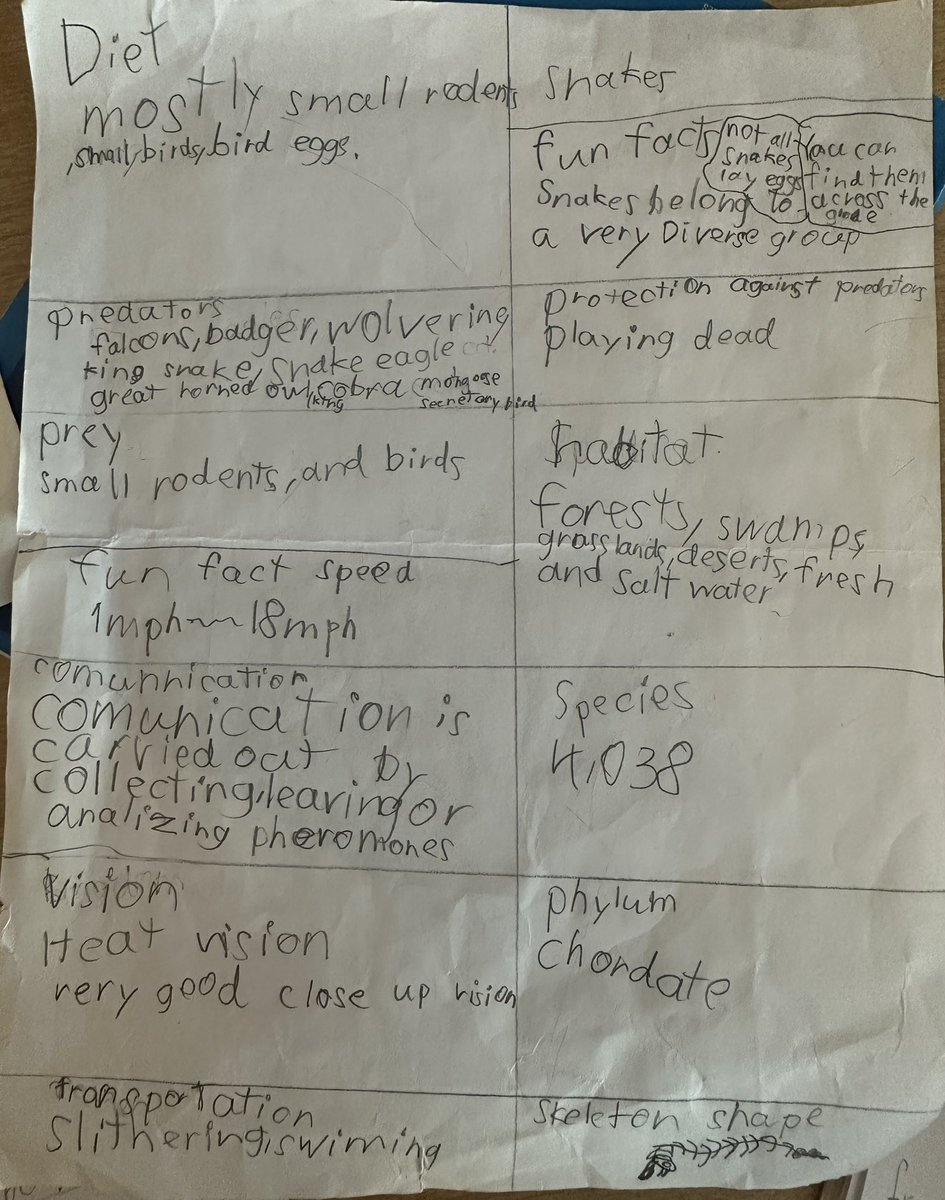 Diet
mostly small rodents
,small,birds,bird eggs.
snakes
fun facts
Snakes belong to
a very Diverse group
not all
snakes
lay eggs
You can
find them
across the
globe
predators
falcons, badger, wolvering
king snake, snake eagle
great horned owl, cobra (mongoose
(king
secretary bird
protection against predators
playing dead
prey
small rodents, and birds
habitat
forests, swamps,
grasslands, deserts, fresh
and salt water
fun fact speed
1mph~~18mph
comunnication
comunication is
carried out by
collecting, leaving or
analizing pheromones
Species
4,038
Vision
Heat vision
very good close up vision
phylum
chordate
transportation
slithering, swiming
skeleton shape